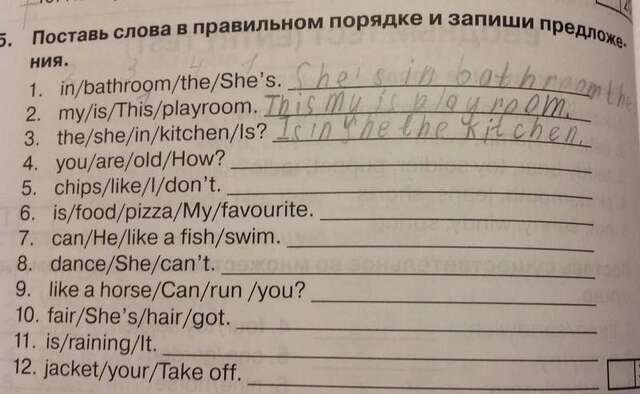 5. Поставь слова в правильном порядке и запиши предложе-
ния.
1. in/bathroom/the/She's. She's in bathroom the
2. my/is/This/playroom. This my is playroom.
3. the/she/in/kitchen/Is? Is in she the kitchen.
4. you/are/old/How?
5. chips/like/I/don't.
6. is/food/pizza/My/favourite.
7. can/He/like a fish/swim.
8. dance/She/can't.
9. like a horse/Can/run /you?
10. fair/She's/hair/got.
11. is/raining/It.
12. jacket/your/Take off.